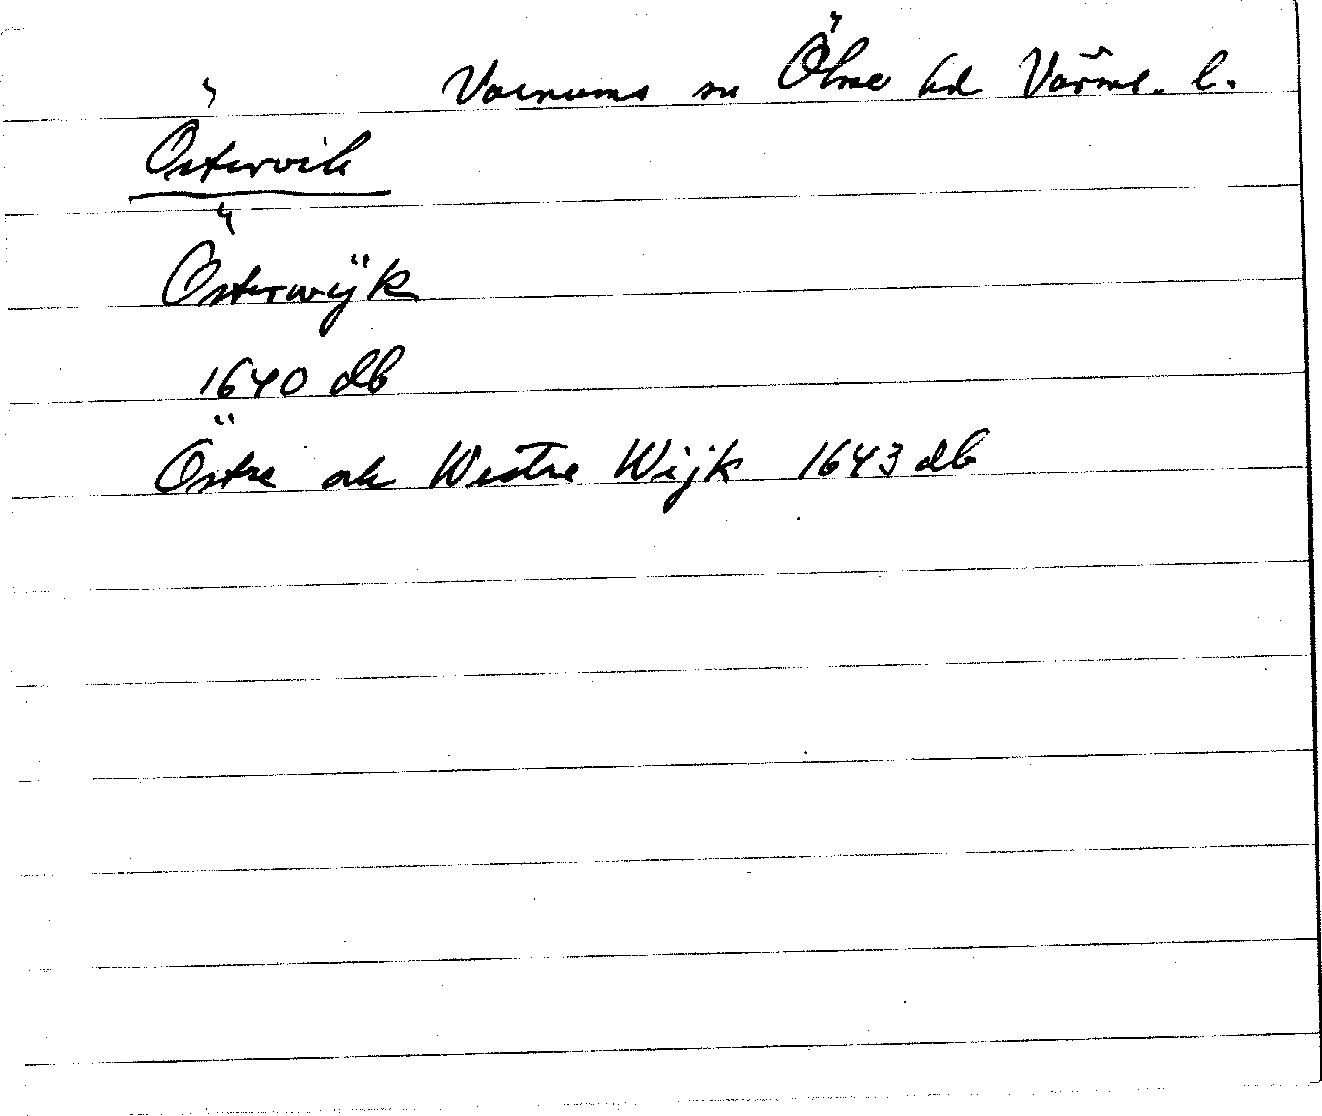 Varnums sn Ölme hd Värml. l.
Östervik
Österwÿk
1640 db
Östre ok Westre Wijk 1643 db